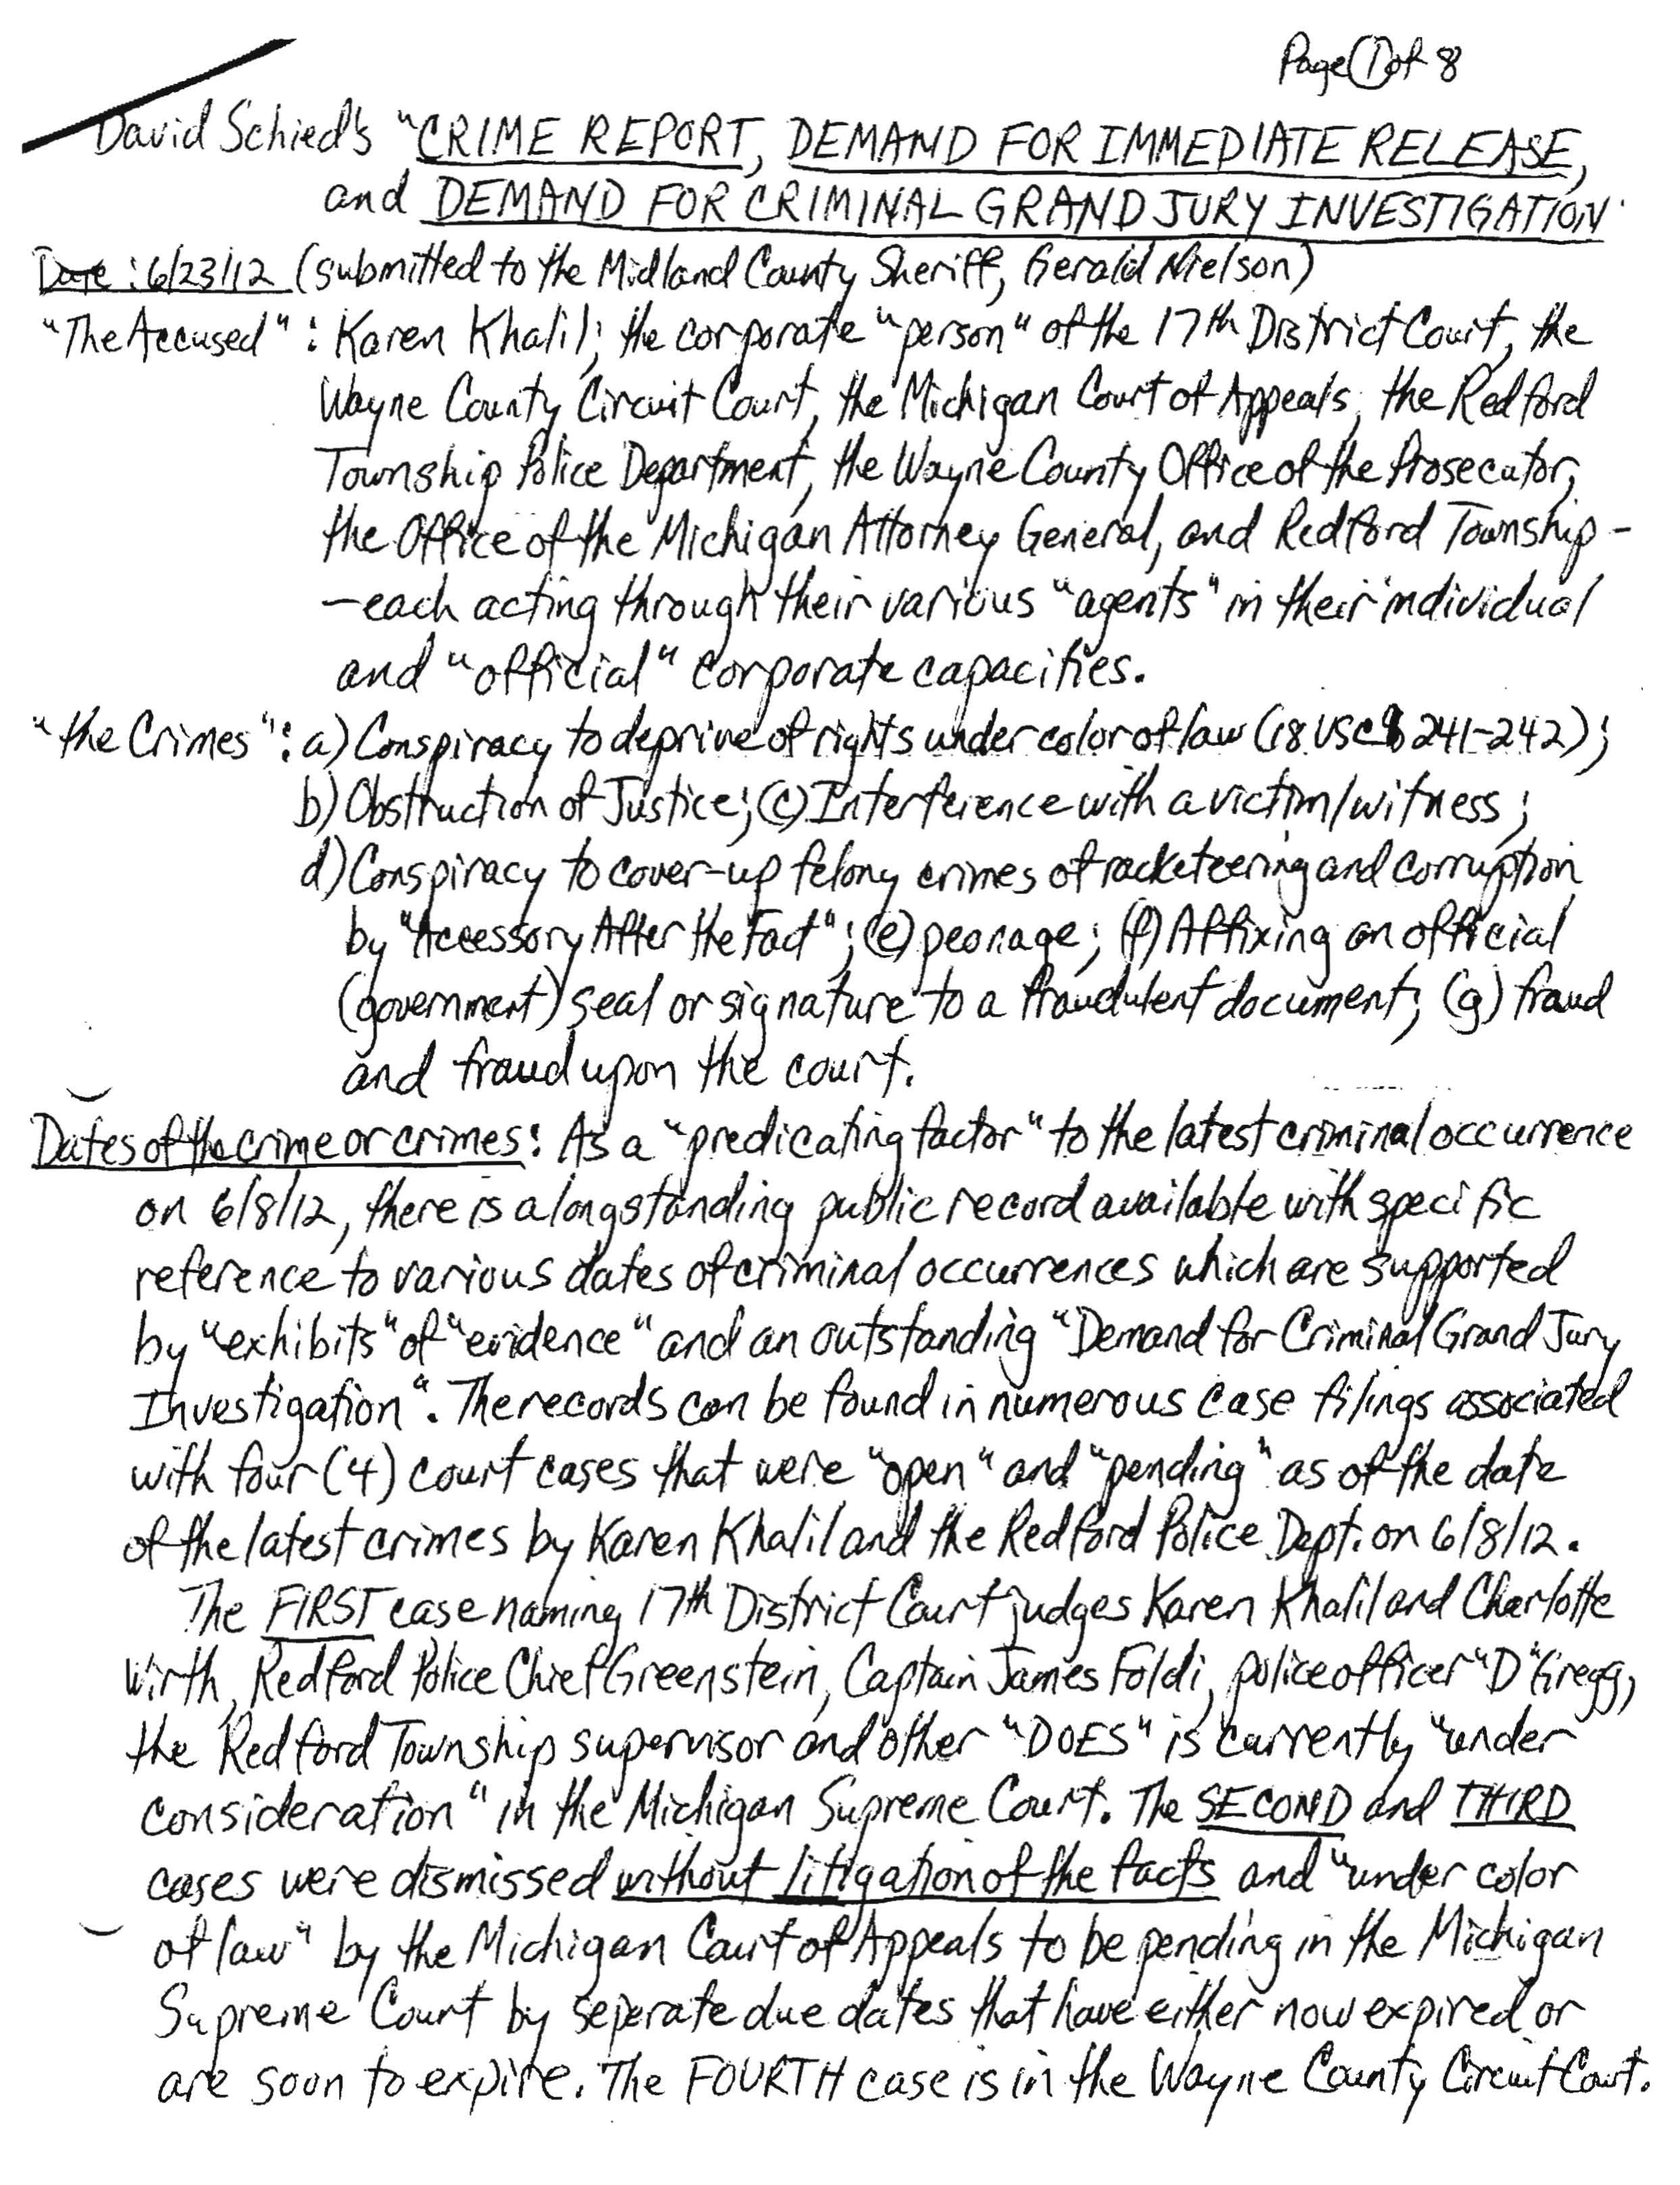 Page 1 of 8
David Schied's "CRIME REPORT, DEMAND FOR IMMEDIATE RELEASE,
and DEMAND FOR CRIMINAL GRAND JURY INVESTIGATION
Date: 6/23/12 (submitted to the Midland County Sheriff, Gerald Nielson)
"The Accused": Karen Khalil; the corporate "person" of the 17th District Court, the
Wayne County Circuit Court, the Michigan Court of Appeals, the Redford
Township Police Department, the Wayne County Office of the Prosecutor,
the Office of the Michigan Attorney General, and Redford Township -
- each acting through their various "agents" in their individual
and "official" corporate capacities.
"the Crimes": a) Conspiracy to deprive of rights under color of law (18 USC § 241-242);
b) Obstruction of Justice; (c) Interference with a victim/witness;
d) Conspiracy to cover-up felony crimes of racketeering and corruption
by "Accessory After the Fact"; (e) peonage; (f) Affixing an official
(government) seal or signature to a fraudulent document; (g) fraud
and fraud upon the court.
Dates of the crime or crimes: As a "predicating factor" to the latest criminal occurrence
on 6/8/12, there is a longstanding public record available with specific
reference to various dates of criminal occurrences which are supported
by "exhibits" of "evidence" and an outstanding "Demand for Criminal Grand Jury
Investigation". The records can be found in numerous case filings associated
with four (4) court cases that were "open" and "pending" as of the date
of the latest crimes by Karen Khalil and the Redford Police Dept. on 6/8/12.
The FIRST case naming 17th District Court judges Karen Khalil and Charlotte
Wirth, Redford Police Chief Greenstein, Captain James Foldi, police officer "D" Gregg,
the Redford Township supervisor and other "DOES" is currently "under
consideration" in the Michigan Supreme Court. The SECOND and THIRD
cases were dismissed without litigation of the facts and "under color
of law" by the Michigan Court of Appeals to be pending in the Michigan
Supreme Court by seperate due dates that have either now expired or
are soon to expire. The FOURTH case is in the Wayne County Circuit Court.